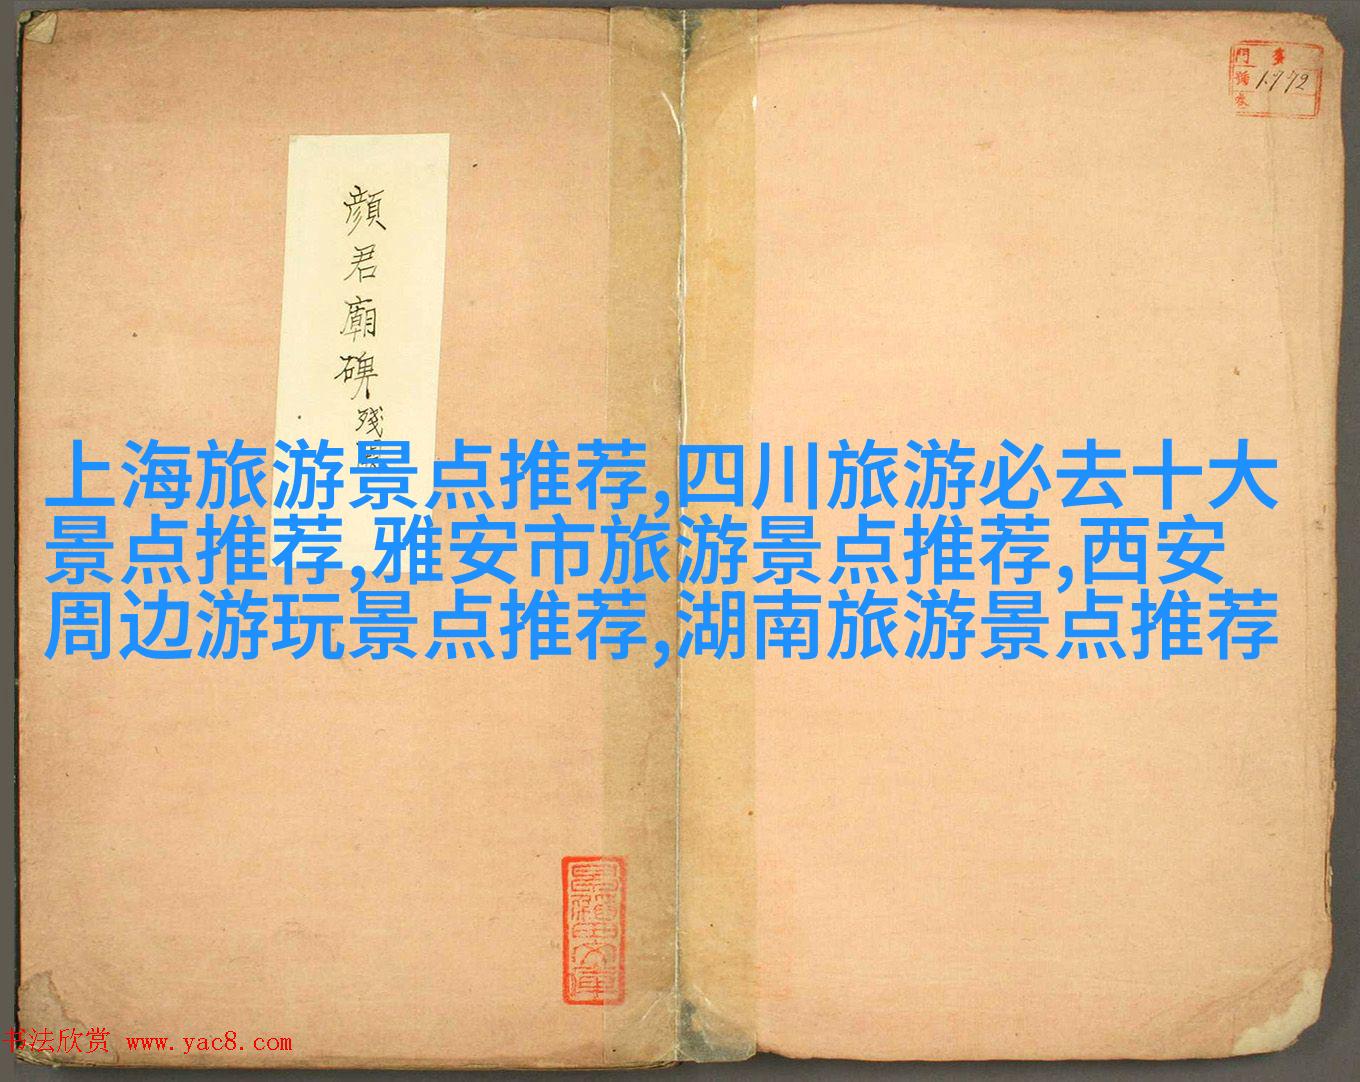 門 
號 1772
顔君廟碑残
上海旅游景点推荐,四川旅游必去十大
景点推荐,雅安市旅游景点推荐,西安
周边游玩景点推荐,湖南旅游景点推荐
书法欣赏 www.yac8.com